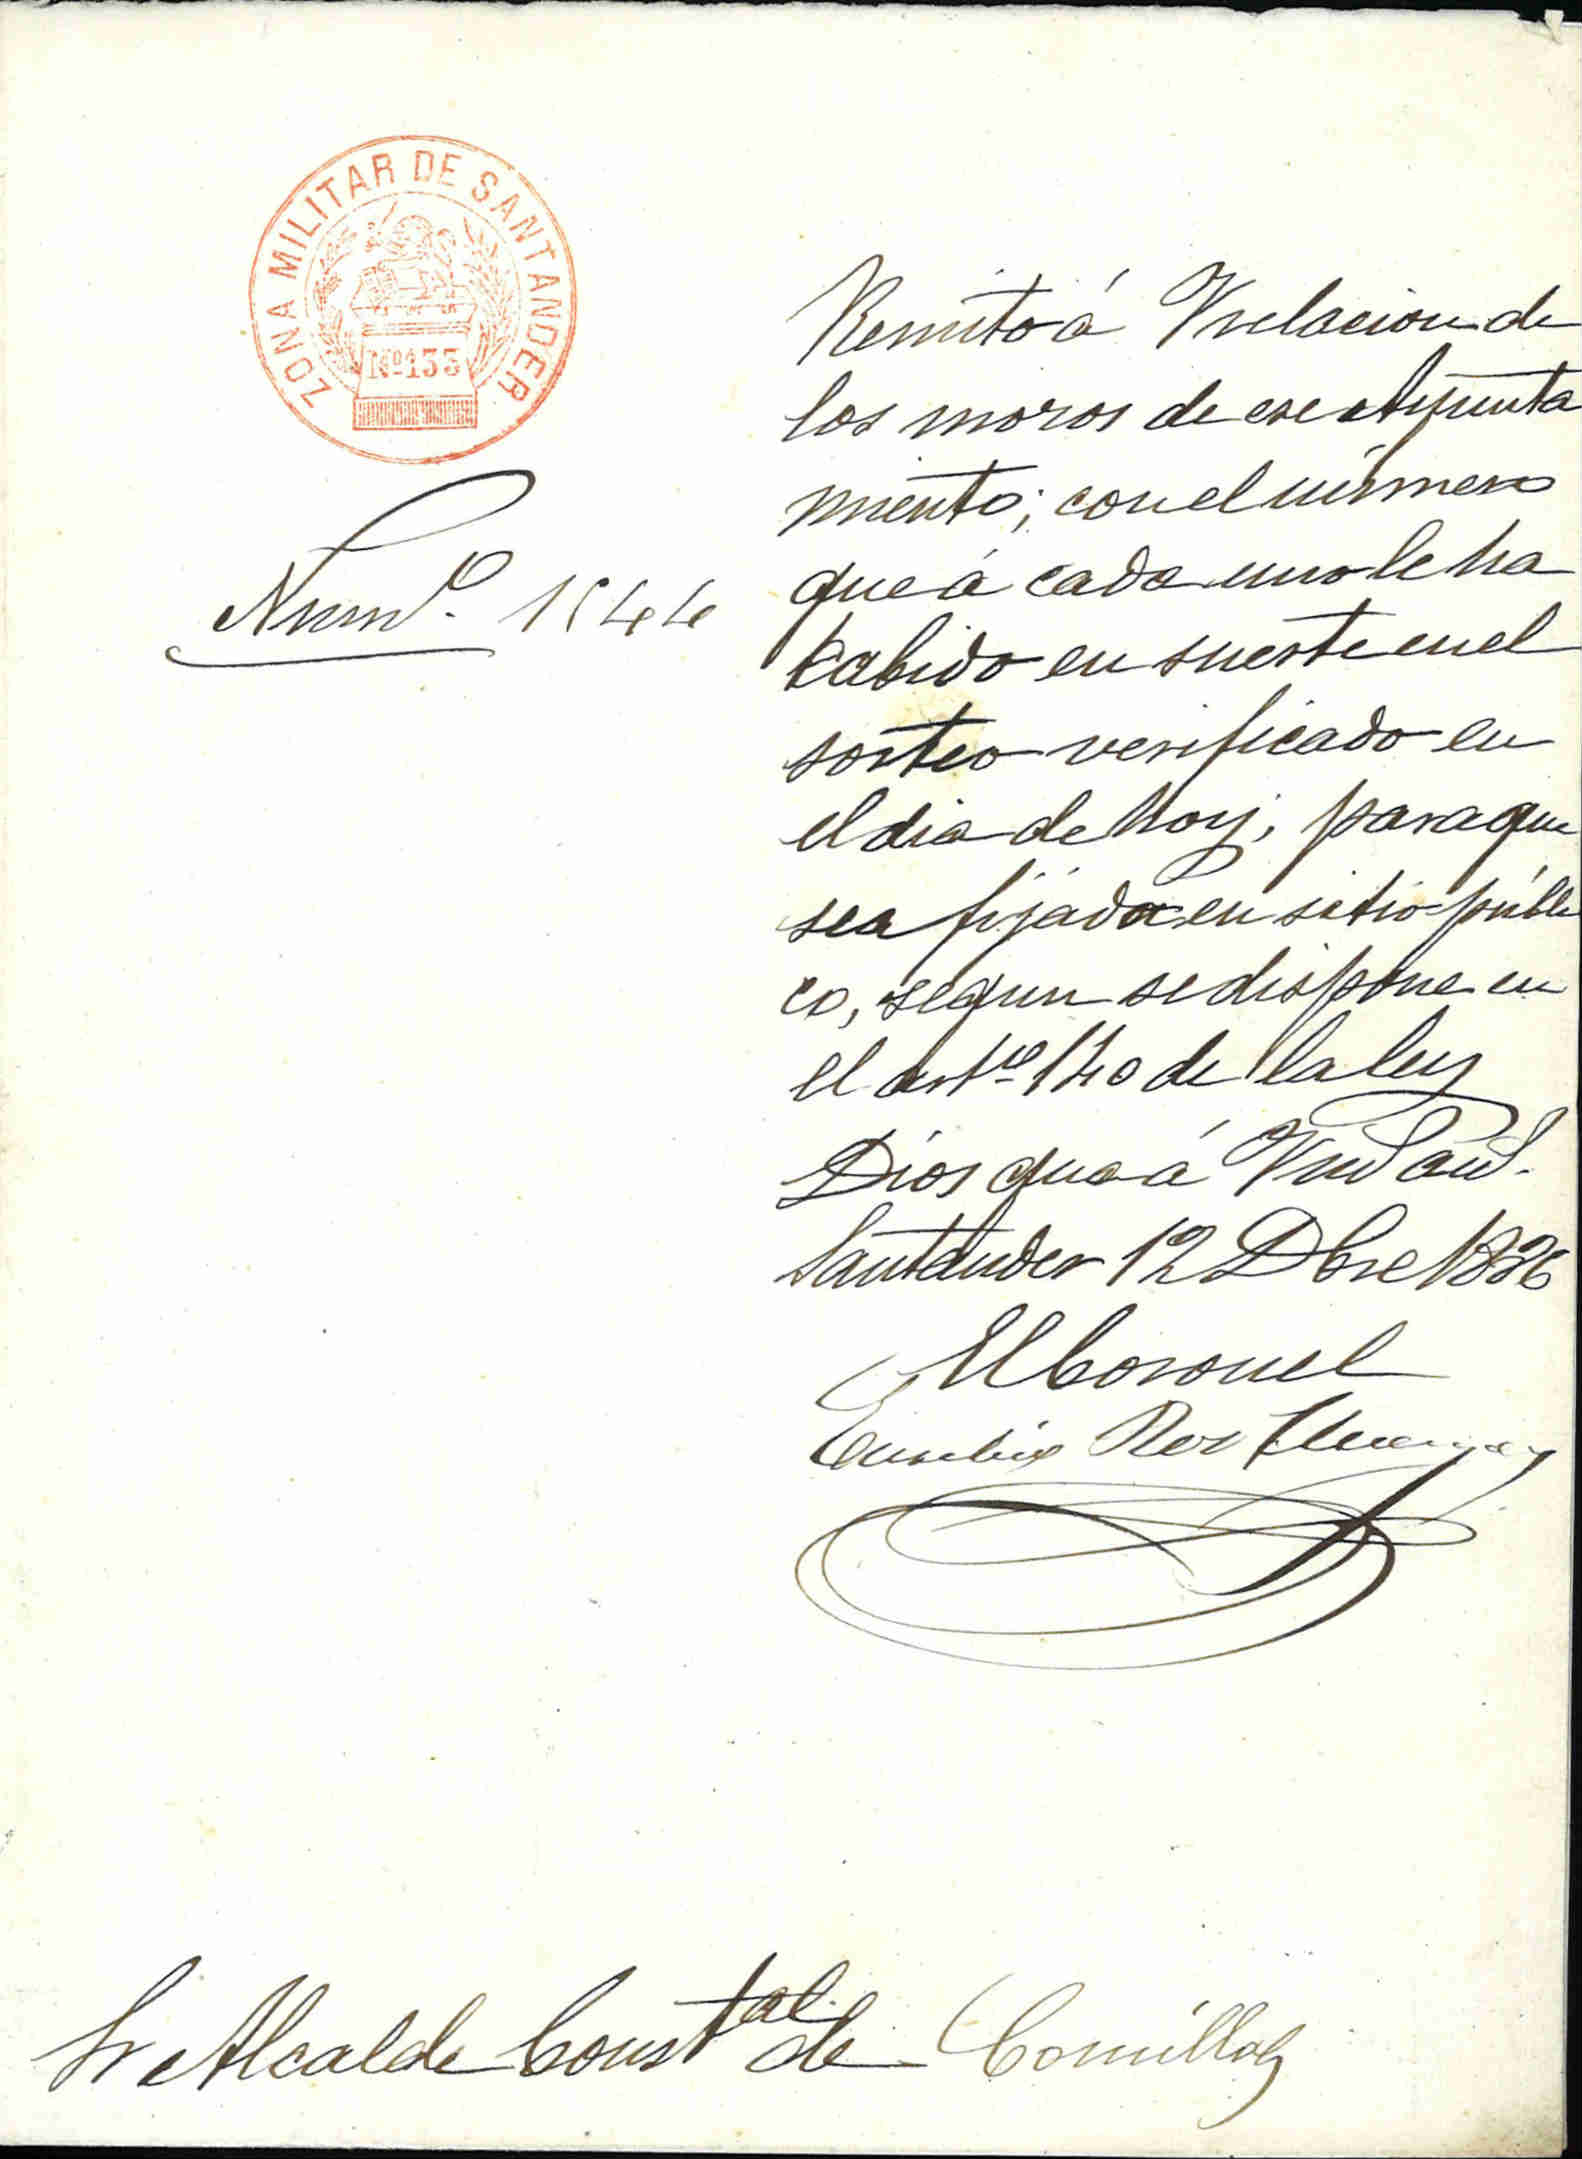 ZONA MILITAR DE SANTANDER
Nº 133
Numº. 1544
Remito á V relacion de
los mozos de ese Ayunta
miento; con el número
que á cada uno le ha
cabido en suerte en el
sorteo verificado en
el dia de hoy; para que
sea fijada en sitio públi
co, segun se dispone en
el artº 140 de la ley
Dios gue á V md as.
Santander 12 Dbre 1886
El Coronel
Eusebio
Sr Alcalde Constal de Comillas